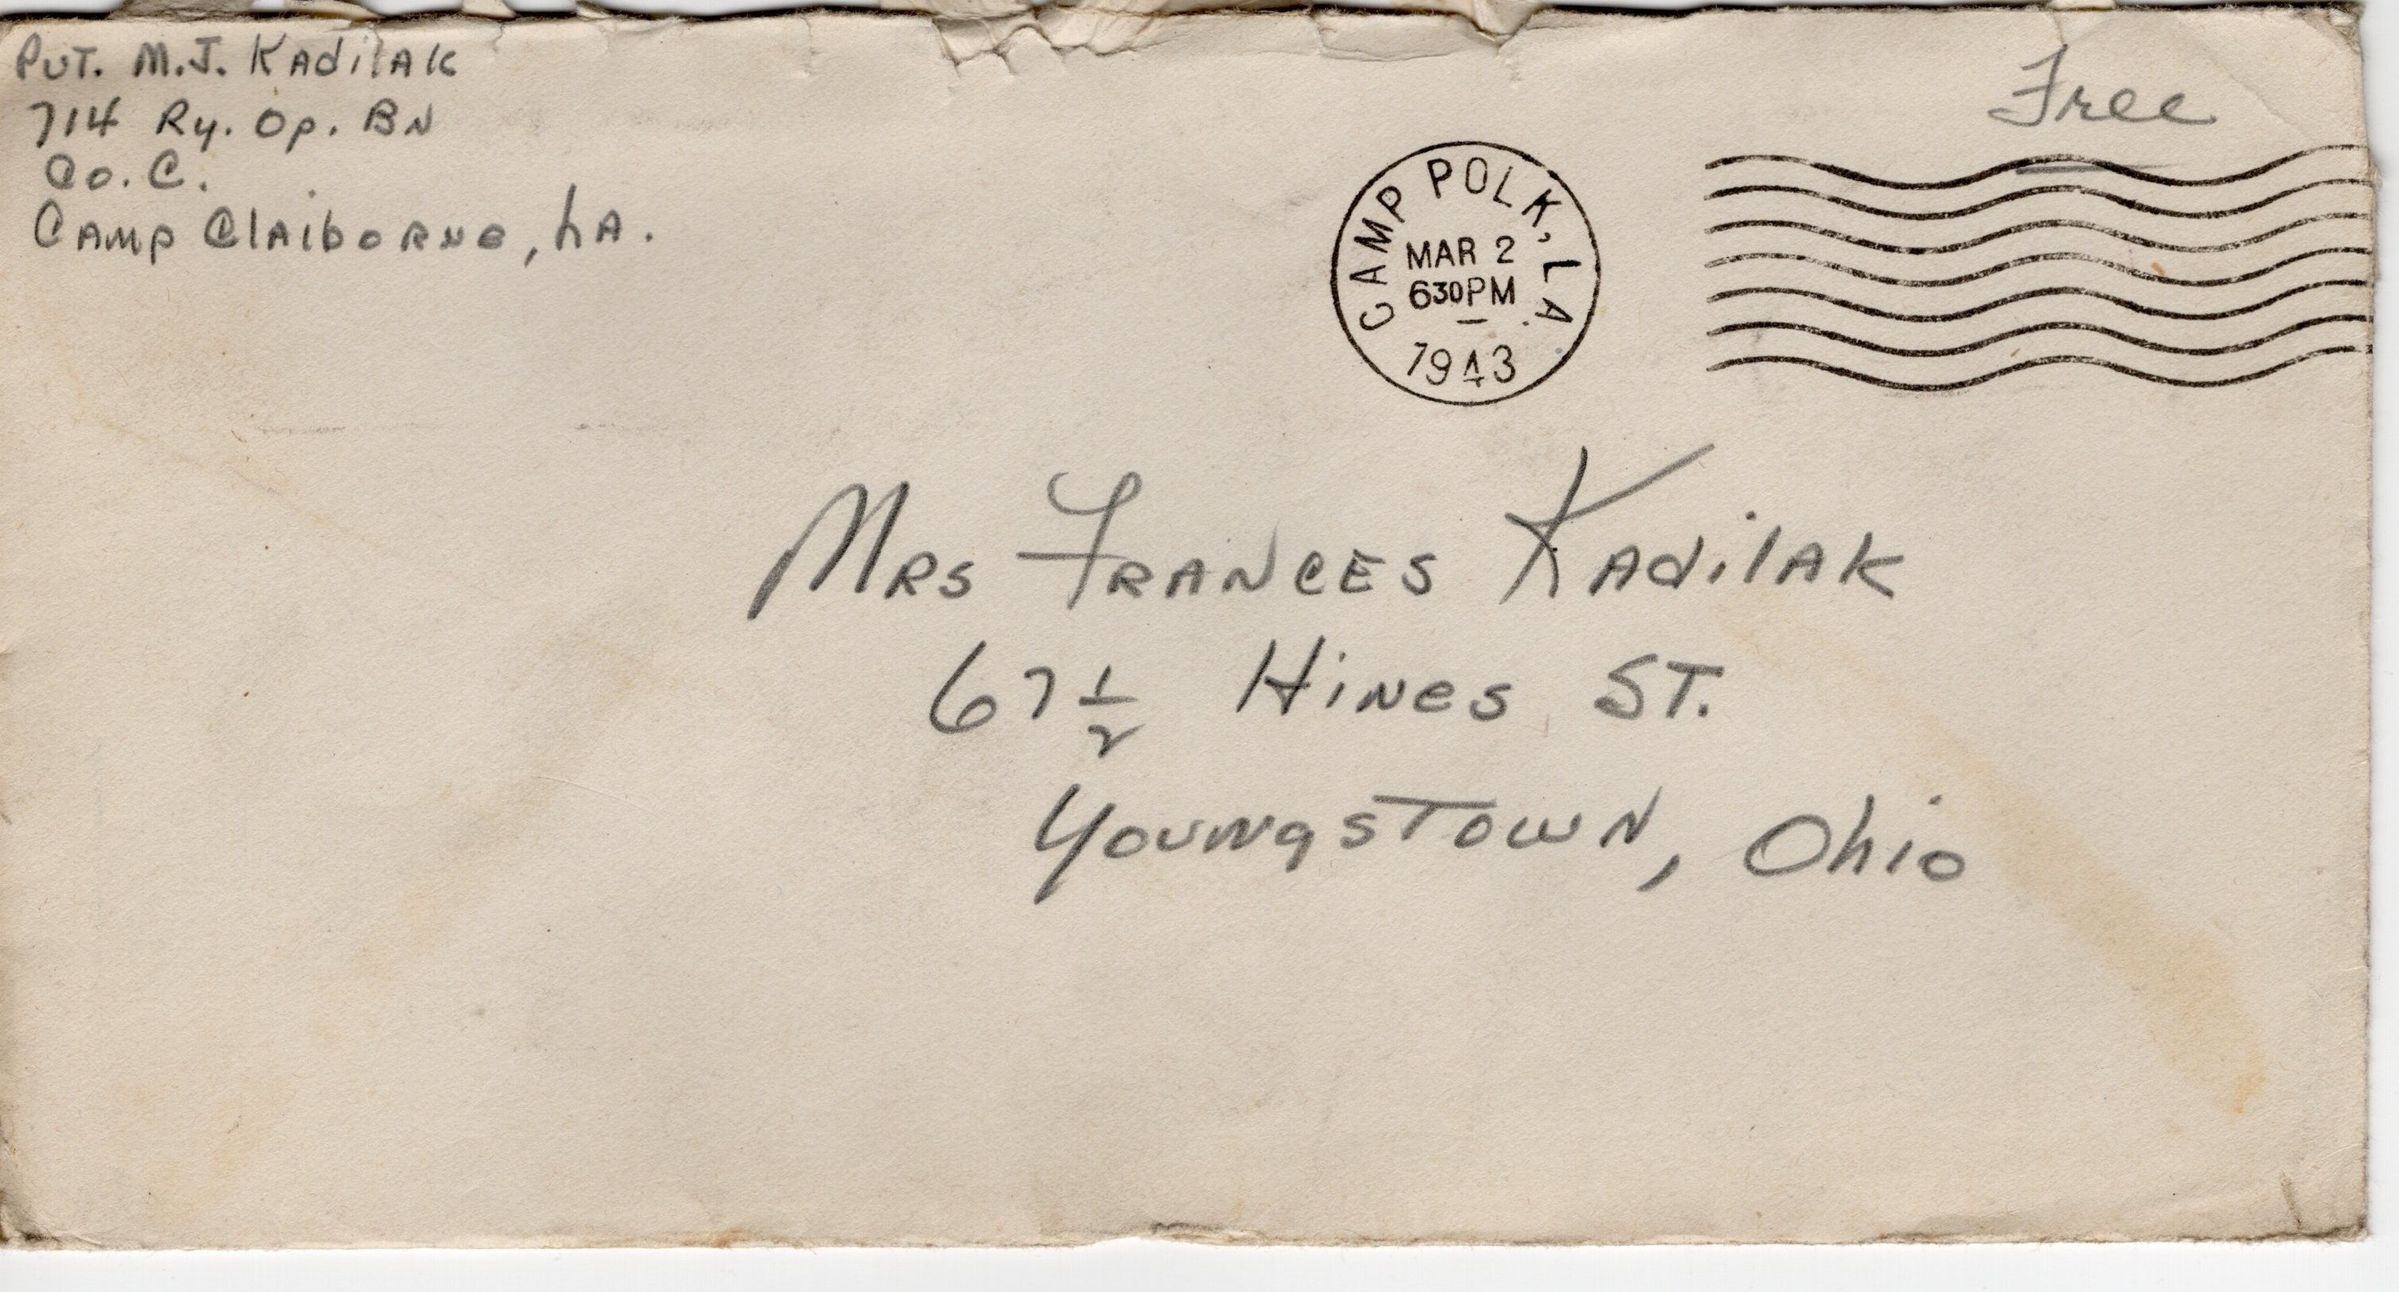 Pvt. M.J. Kadilak
714 Ry. Op. Bn
Co. C.
Camp Claiborne, La.
Free
CAMP POLK, LA.
MAR 2
630PM
1943
Mrs Frances Kadilak
67 1/2 Hines St.
Youngstown, Ohio